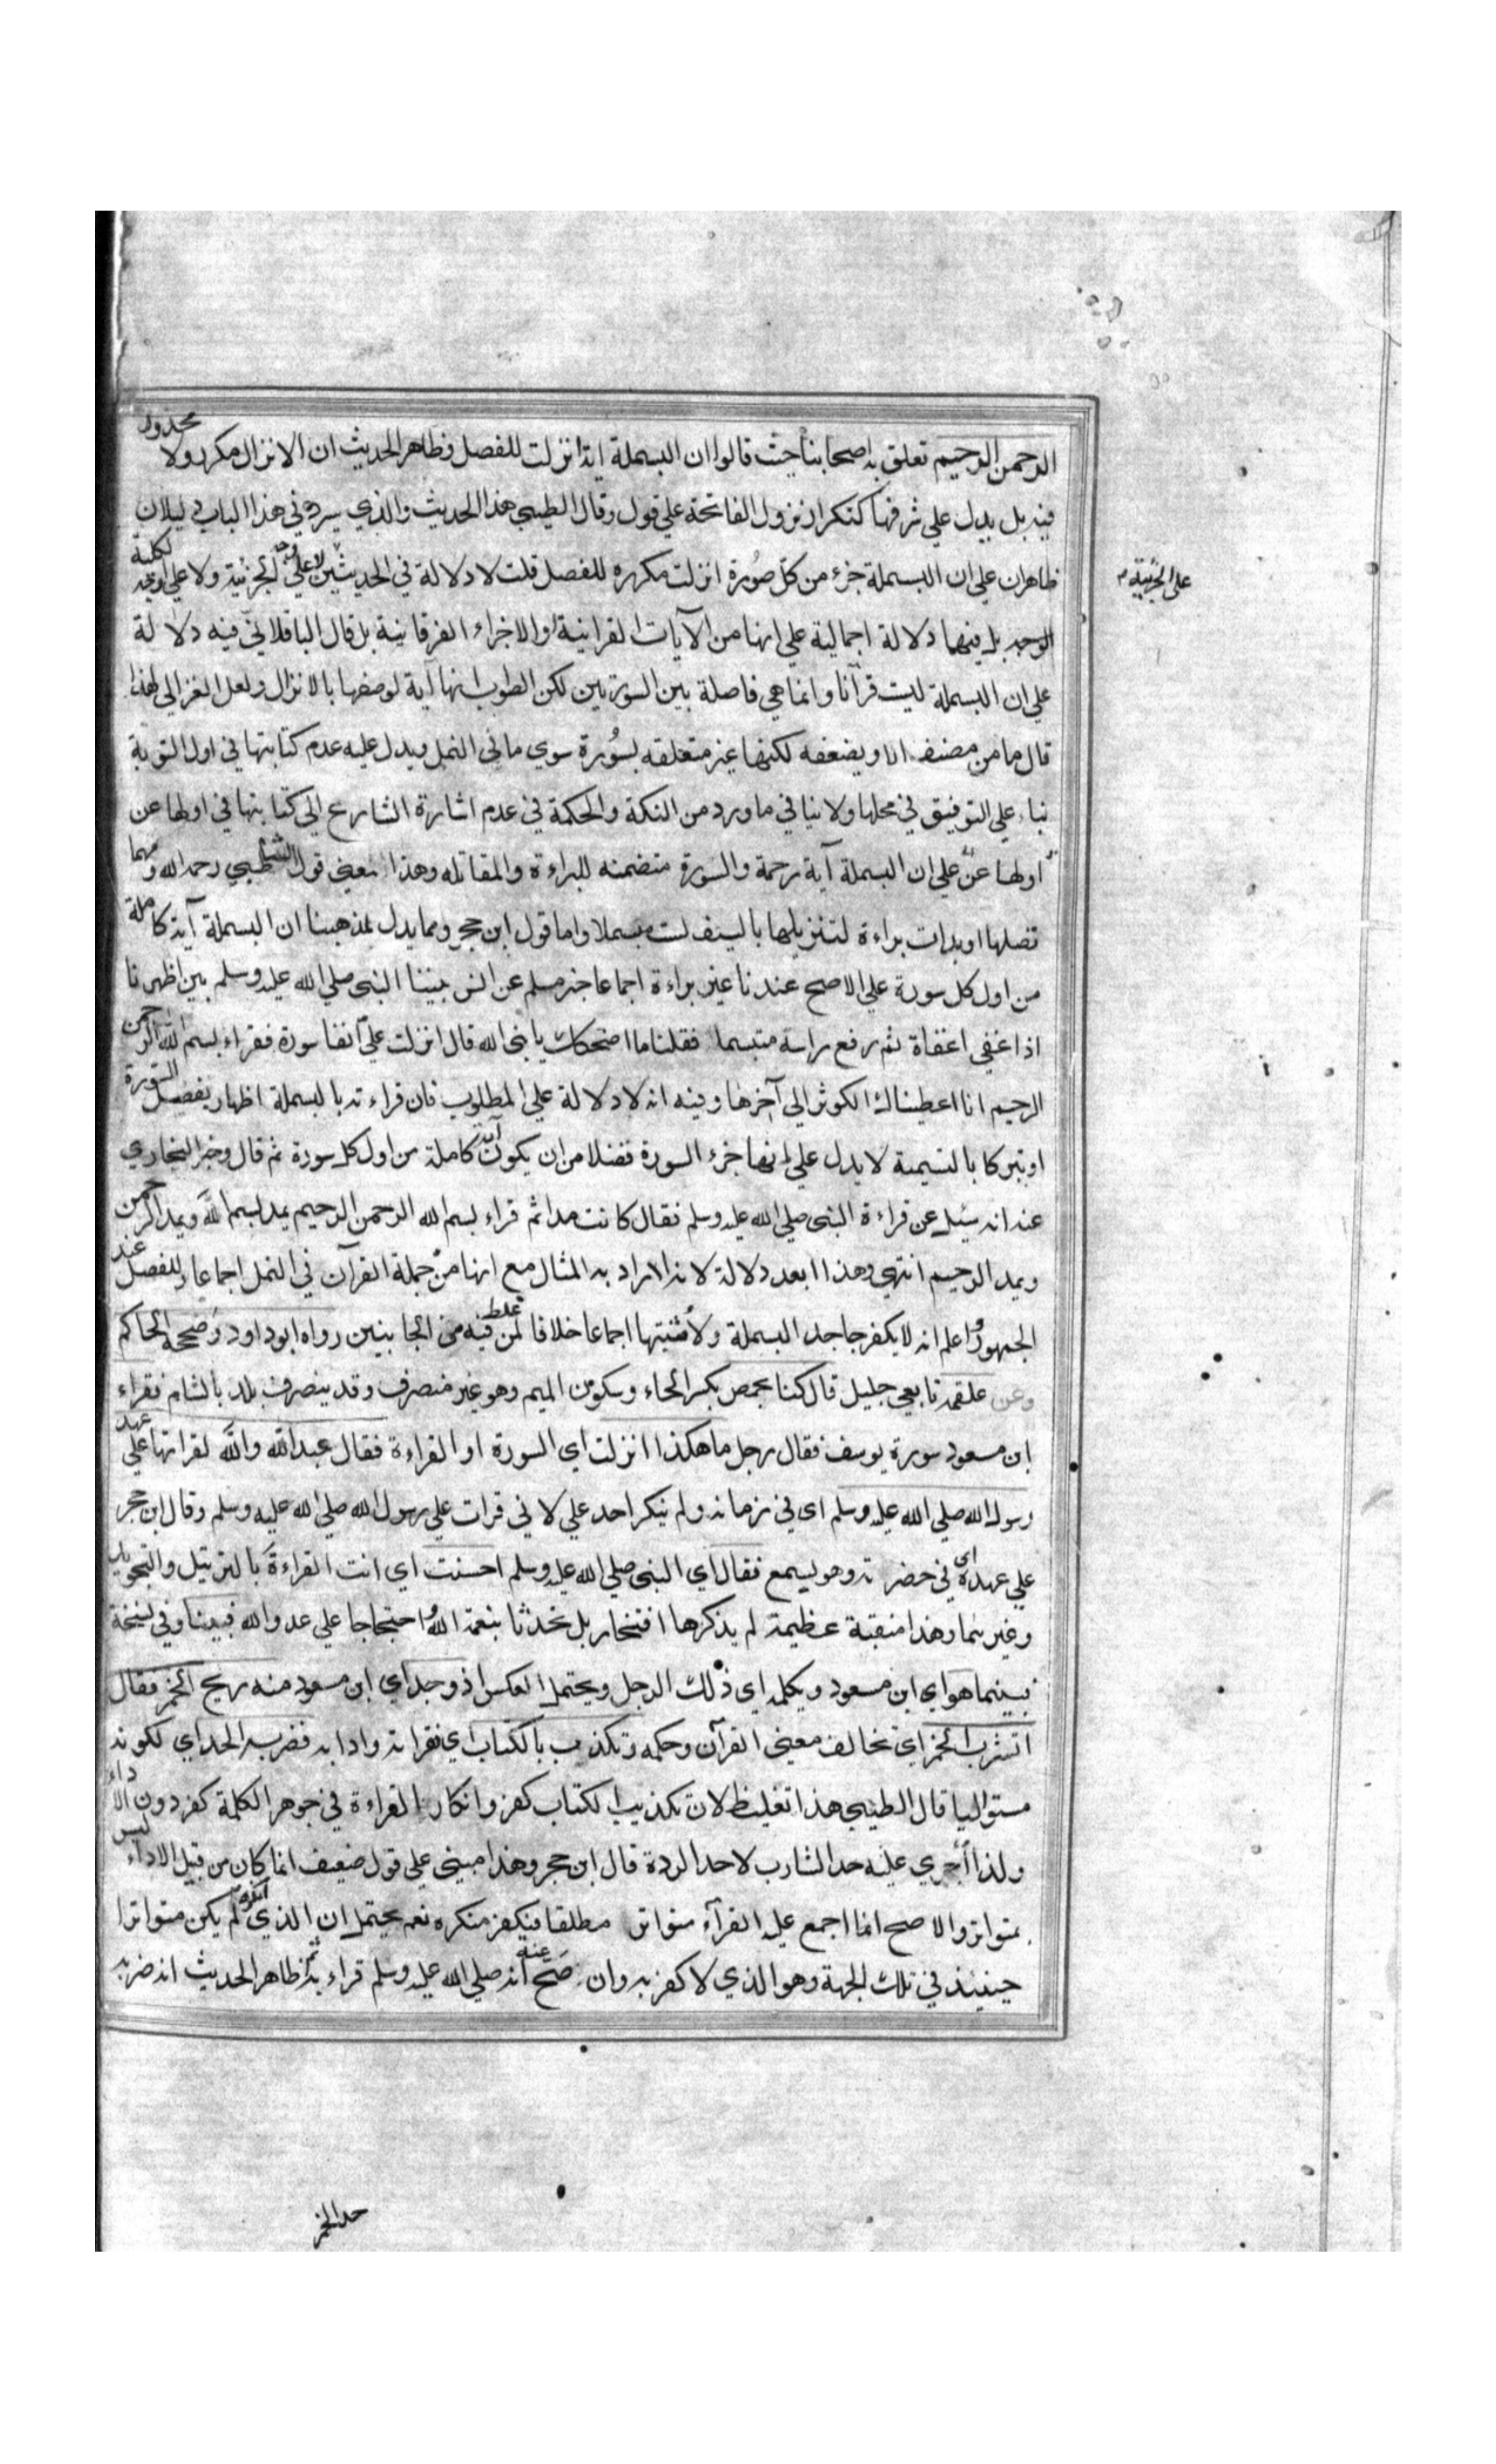 الرحمن الرحيم تعلق به اصحابنا حيث قالوا ان البسملة اية انزلت للفصل وظاهر الحديث ان الانزال مكرر ولا محذور
فيه بل يدل علي شرفها كتكرار نزول الفاتحة علي قول وقال الطيبي هذا الحديث والذي سيرد في هذا الباب دليلان
ظاهران علي ان البسملة جزء من كل صورة انزلت مكرره للفصل قلت لا دلالة في الحديثين لا علي وجه الجزئية ولا علي
علي الجزئية
الوجه بل فيهما دلالة اجمالية علي انها من الآيات القرانية والاجزاء الفرقانية بل قال الباقلاني فيه دلالة
علي ان البسملة ليست قرآنا وانما هي فاصلة بين السورتين لكن الصواب انها آية لوصفها بالانزال ولعل الغزالي لهذا
قال ما من منصف الا ويضعفه لكنها غير متعلقه بسورة سوي ما في النمل ويدل عليه عدم كتابتها في اول التوبة
بناء علي التوفيق في محلها ولا ينافي ما ورد من النكة والحكمة في عدم اشارة الشارع الي كتابتها في اولها عن
اولها عن علي ان البسملة آية رحمة والسورة متضمنه للبراءة والمقاتله وهذا معني قول الشاطبي رحمه الله ومهما
تصلها او بدات براءة لتنزيلها بالسيف لست مبسملا واما قول ابن حجر ومما يدل لمذهبنا ان البسملة آية كاملة
من اول كل سورة علي الاصح عندنا غير براءة اجماعا خبر مسلم عن انس بينا النبي صلي الله عليه وسلم بين اظهرنا
اذا غفي اغفاة ثم رفع راسه متبسما فقلنا ما اضحكك يا نبي الله قال انزلت علي آنفا سورة فقراء بسم الله الرحمن
الرحيم انا اعطيناك الكوثر الي آخرها وفيه انه لا دلالة علي المطلوب فان قراءته بالبسملة اظهار بفصل السورة
او تبركا بالتسمية لا يدل علي انها جزء السورة فضلا من ان يكون آية كاملة من اول كل سورة ثم قال وخبر البخاري
عنه انه سئل عن قراءة النبي صلي الله عليه وسلم فقال كانت مدا ثم قراء بسم الله الرحمن الرحيم يمد بسم الله ويمد الرحمن
ويمد الرحيم انتهي وهذا ابعد دلالة لانه اراد به المثال مع انها من جملة القرآن في النمل اجماعا وللفصل عند
الجمهور واعلم انه لا يكفر جاحد البسملة ولا مثبتها اجماعا خلافا لمن غلط فيه من الجانبين رواه ابوداود وصححه الحاكم
وعن علقمه تابعي جليل قال كنا بحمص بكسر الحاء وسكون الميم وهو غير منصرف وقد ينصرف بلد بالشام فقراء
ابن مسعود سورة يوسف فقال رجل ما هكذا انزلت اي السورة او القراءة فقال عبد الله والله لقراتها علي عهد
رسول الله صلي الله عليه وسلم اي في زمانه ولم ينكر احد علي لاني قرات علي رسول الله صلي الله عليه وسلم وقال ابن حجر
علي عهده اي في حضرته وهو يسمع فقال اي النبي صلي الله عليه وسلم احسنت اي انت القراءة بالترتيل والتجويد
وغيرهما وهذا منقبة عظيمة لم يذكرها افتخار بل تحدثا بنعمة الله واحتجاجا علي عدو الله فبينا وفي نسخة
فبينما هو اي ابن مسعود ويكلمه اي ذلك الرجل ويحتمل العكس اذ وجد اي ابن مسعود منه ريح الخمر فقال
اتشرب الخمر اي تخالف معني القرآن وحكمه وتكذب بالكتاب اي بقراته وادابه فضربه الحد اي لكونه
مستواليا قال الطيبي هذا تغليظ لان تكذيب الكتاب كفر وانكار القراءة في جوهر الكلمة كفر دون الاداء
ولذا أُجري عليه حد الشارب لا حد الردة قال ابن حجر وهذا مبني علي قول ضعيف انما كان من قبيل الاداء ليس
بمتواتر والاصح انما اجمع عليه القراء متواتر مطلقا فيكفر منكره نعم يحتمل ان الذي انكره لم يكن متواترا
حينئذ في تلك الجهة وهو الذي لا كفر به وان صح عنه انه صلي الله عليه وسلم قراء به ثم ظاهر الحديث انه ضربه
حد الخمر